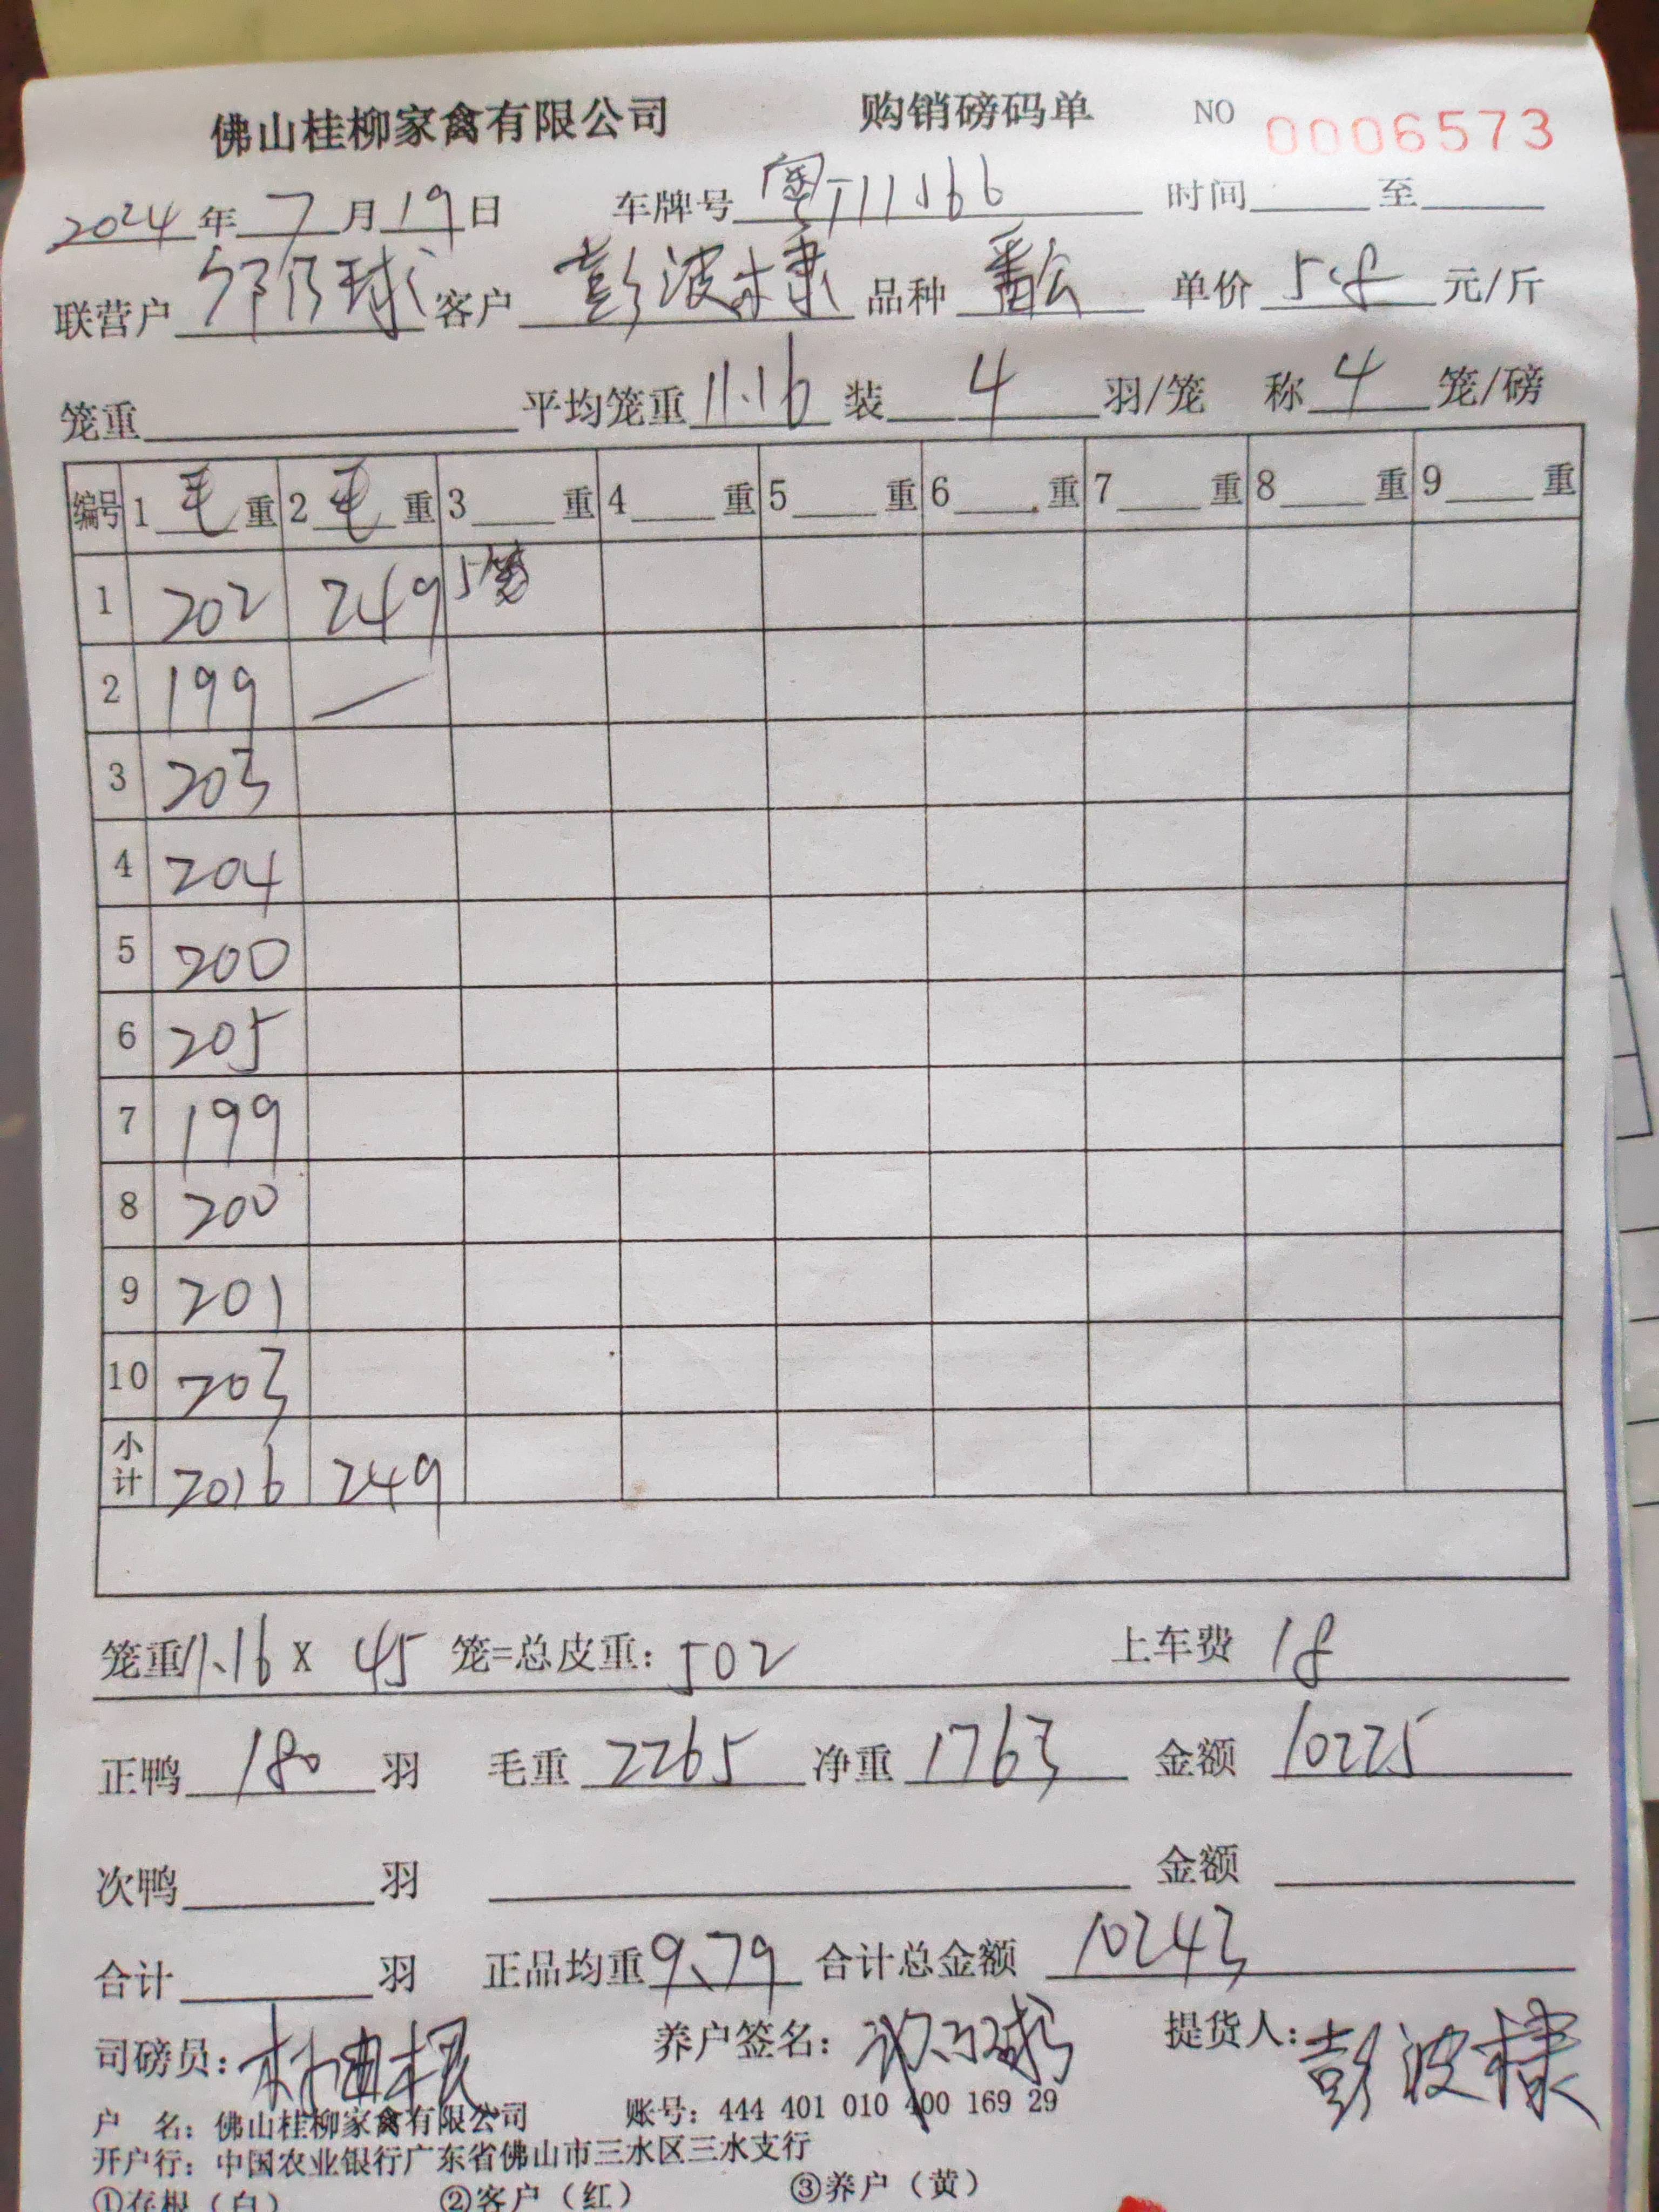 佛山桂柳家禽有限公司 购销磅码单 NO 0006573
2024年7月19日 车牌号 粤 时间 至
联营户 邹乃球 客户 彭波棣 品种 番公 单价 5.8 元/斤
笼重 平均笼重 11.16 装 4 羽/笼 称 4 笼/磅
编号 1 毛 重 2 毛 重 3 重 4 重 5 重 6 重 7 重 8 重 9 重
1 202 249 5笼
2 199 —
3 203
4 204
5 200
6 205
7 199
8 200
9 201
10 203
小计 2016 249
笼重11.16 X 45 笼=总皮重: 502 上车费 18
正鸭 180 羽 毛重 2265 净重 1763 金额 10225
次鸭 羽 金额
合计 羽 正品均重 9.79 合计总金额 10243
司磅员: 养户签名: 提货人: 彭波棣
户 名: 佛山桂柳家禽有限公司 账号: 444 401 010 400 169 29
开户行: 中国农业银行广东省佛山市三水区三水支行
①存根（白） ②客户（红） ③养户（黄）